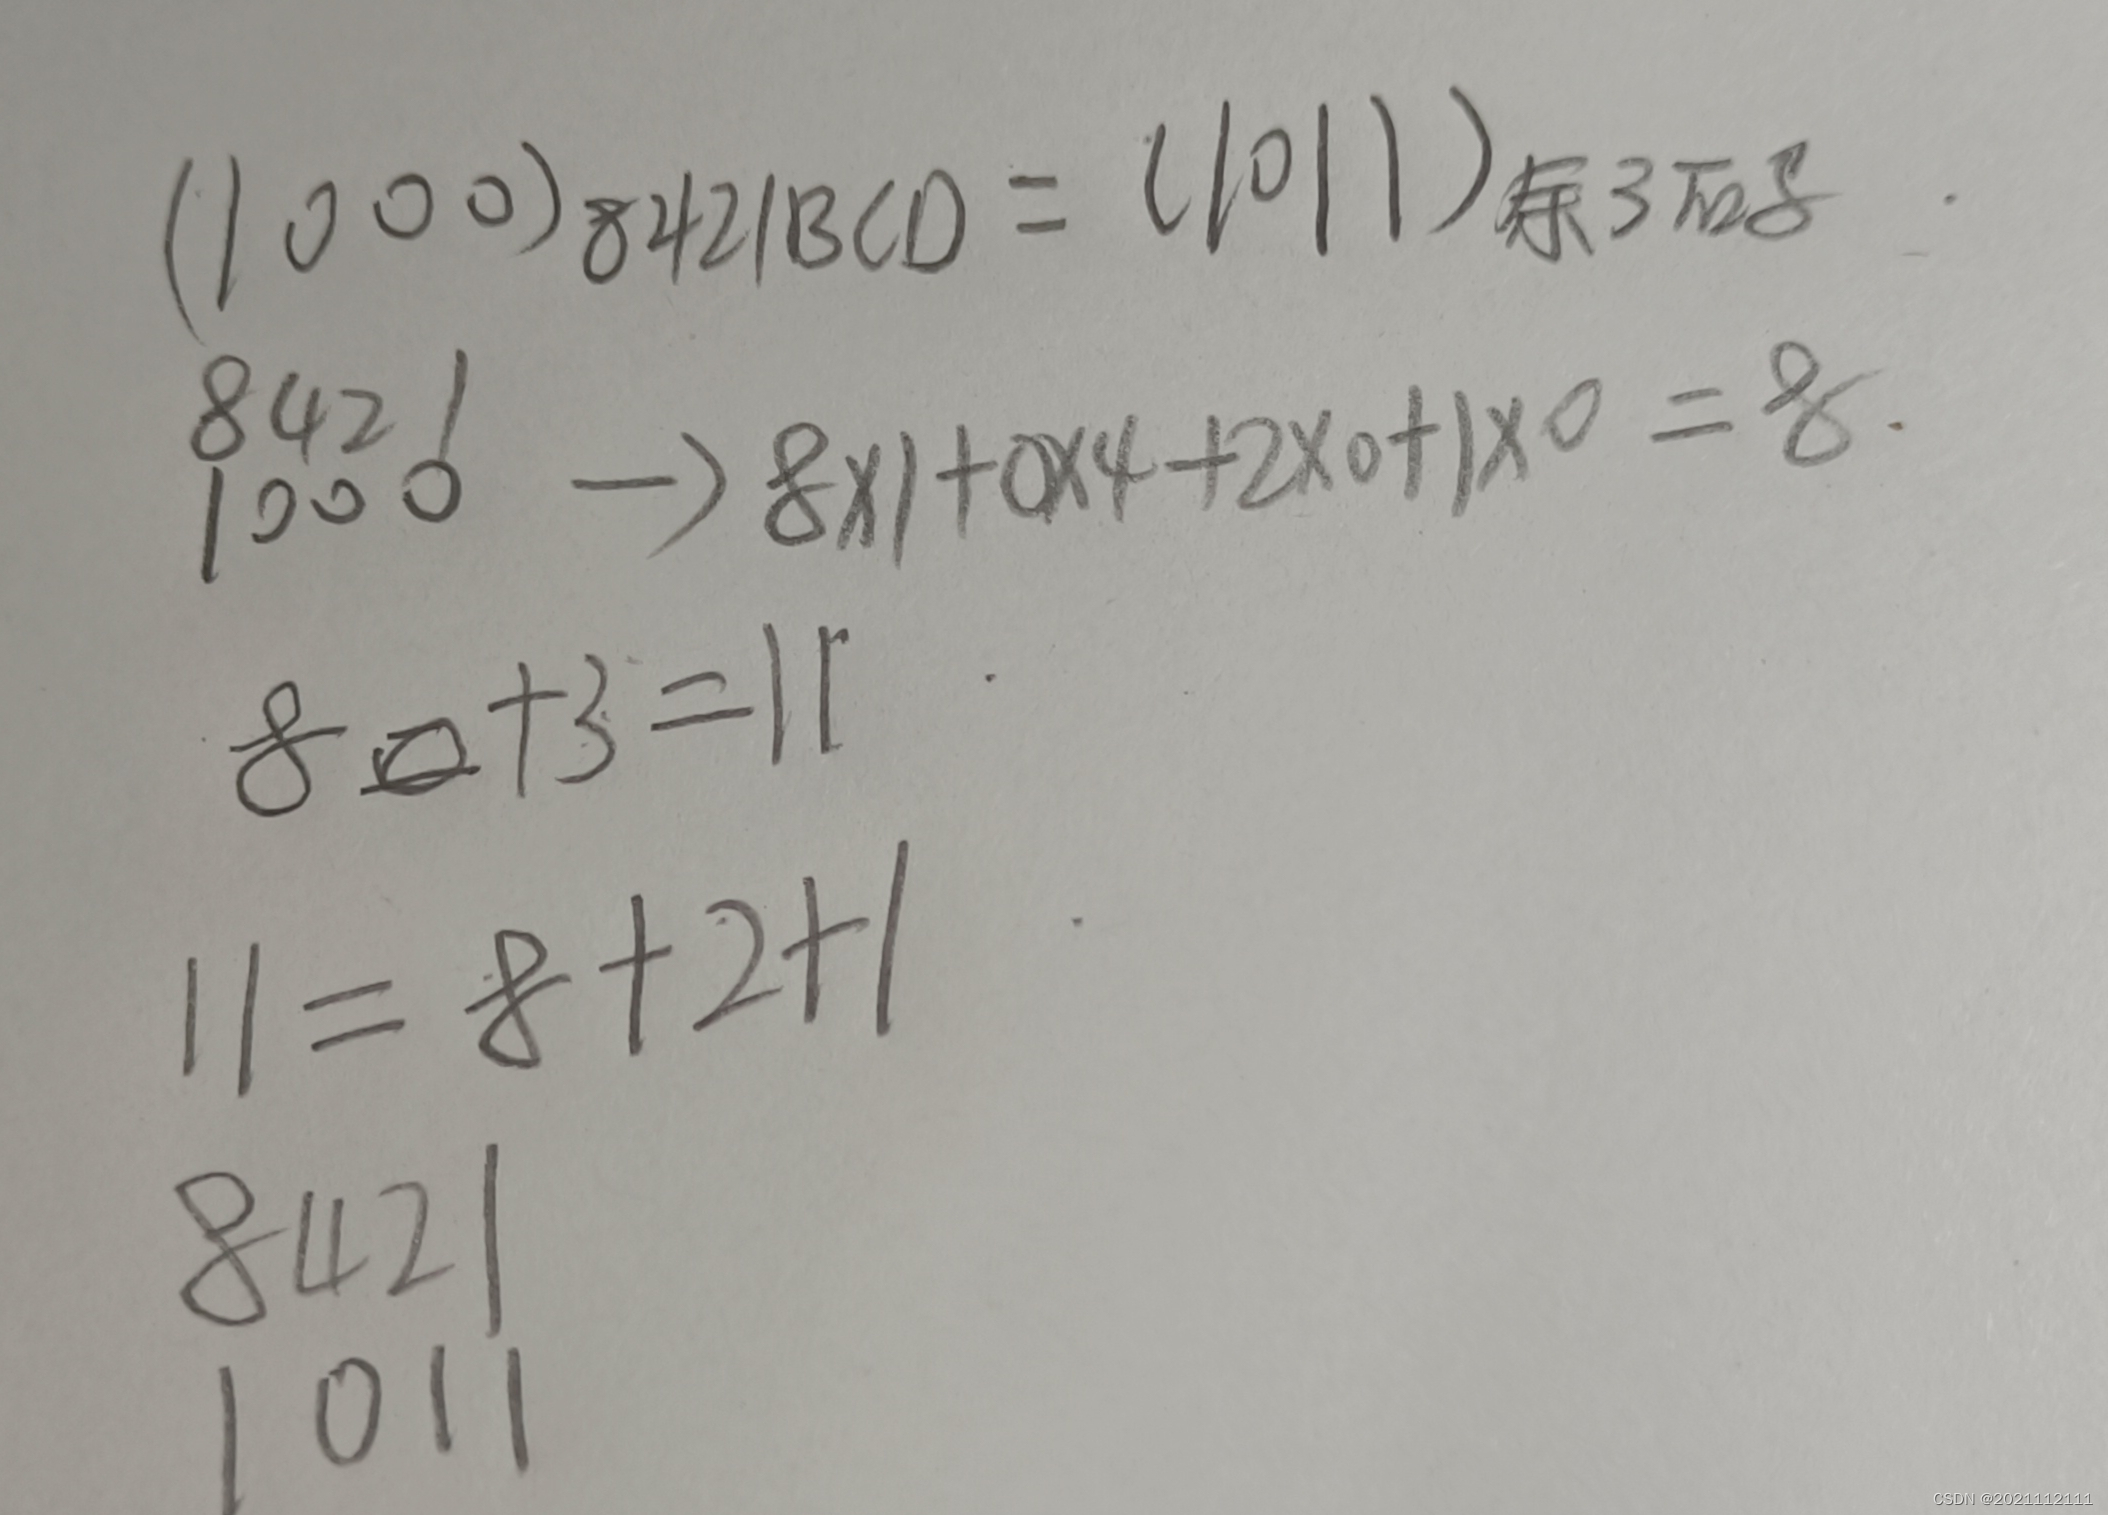 (1000)8421BCD=(1011)余3码
8421
1000 → 8×1+0×4+2×0+1×0=8.
8 +3=11
11=8+2+1
8421
1011
CSDN @2021112111